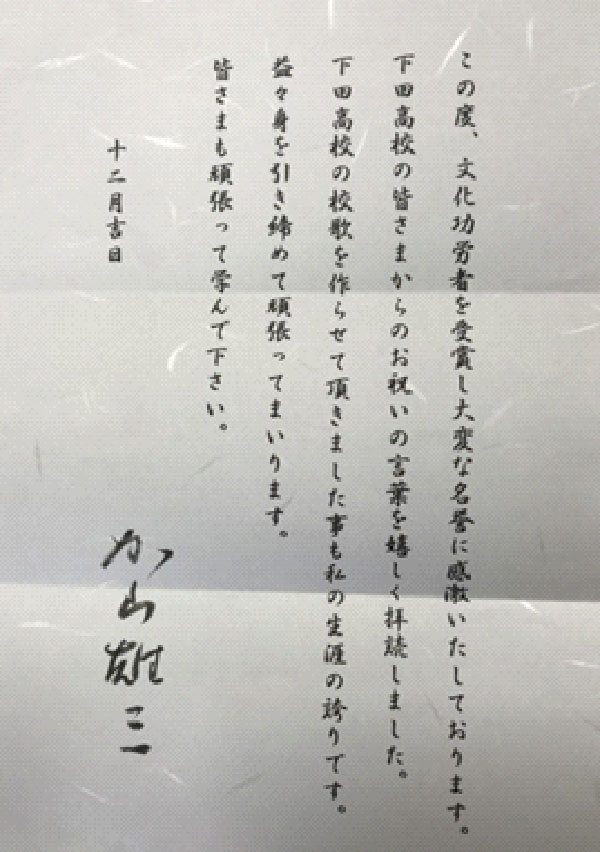 この度、文化功労者を受賞し大変な名誉に感激いたしております。
下田高校の皆さまからのお祝いの言葉を嬉しく拝読しました。
下田高校の校歌を作らせて頂きました事も私の生涯の誇りです。
益々身を引き締めて頑張ってまいります。
皆さまも頑張って学んで下さい。
十二月吉日
加山雄三